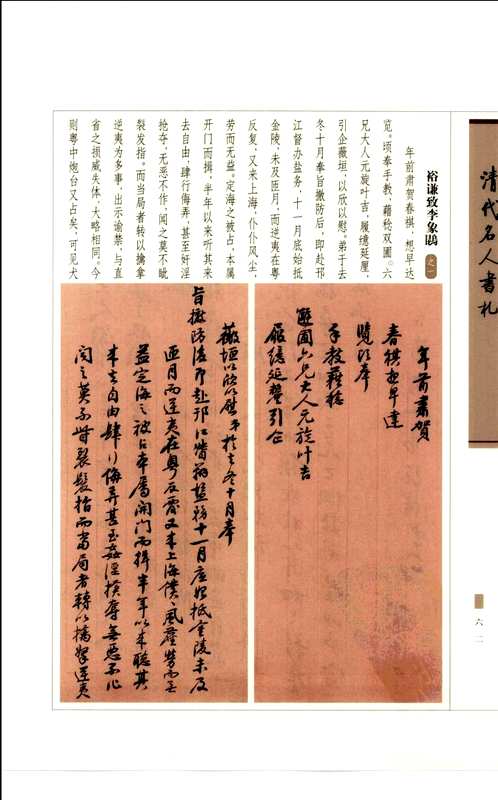 清代名人书札
六二
裕谦致李象鹍 之一
年前肃贺春祺,想早达
览。顷奉手教,藉稔双圃。六
兄大人元旋叶吉,履繶延厘,
引企薇垣,以欣以慰。弟于去
冬十月奉旨撤防后,即赴邗
江督办盐务,十一月底始抵
金陵,未及匝月,而逆夷在粤
反复,又来上海,仆仆风尘,
劳而无益。定海之被占,本属
开门而揖,半年以来听其来
去自由,肆行侮弄,甚至奸淫
抢夺,无恶不作,闻之莫不眦
裂发指。而当局者转以擒拿
逆夷为多事,出示谕禁,与直
省之损威失体,大略相同。今
则粤中炮台又占矣,可见犬
年前肅賀
春祺想早達
覽頃奉
手教藉稔
雙圃六兄大人元旋叶吉
履繶延釐引企
薇垣以欣以慰弟於去冬十月奉
旨撤防後即赴邗江督辦鹽務十一月底始抵金陵未及
匝月而逆夷在粤反覆又来上海僕僕風塵勞而無
益定海之被占本屬開門而揖半年以来聽其
来去自由肆行侮弄甚至姦淫搶奪無惡不作
聞之莫不眥裂髮指而當局者轉以擒拏逆夷